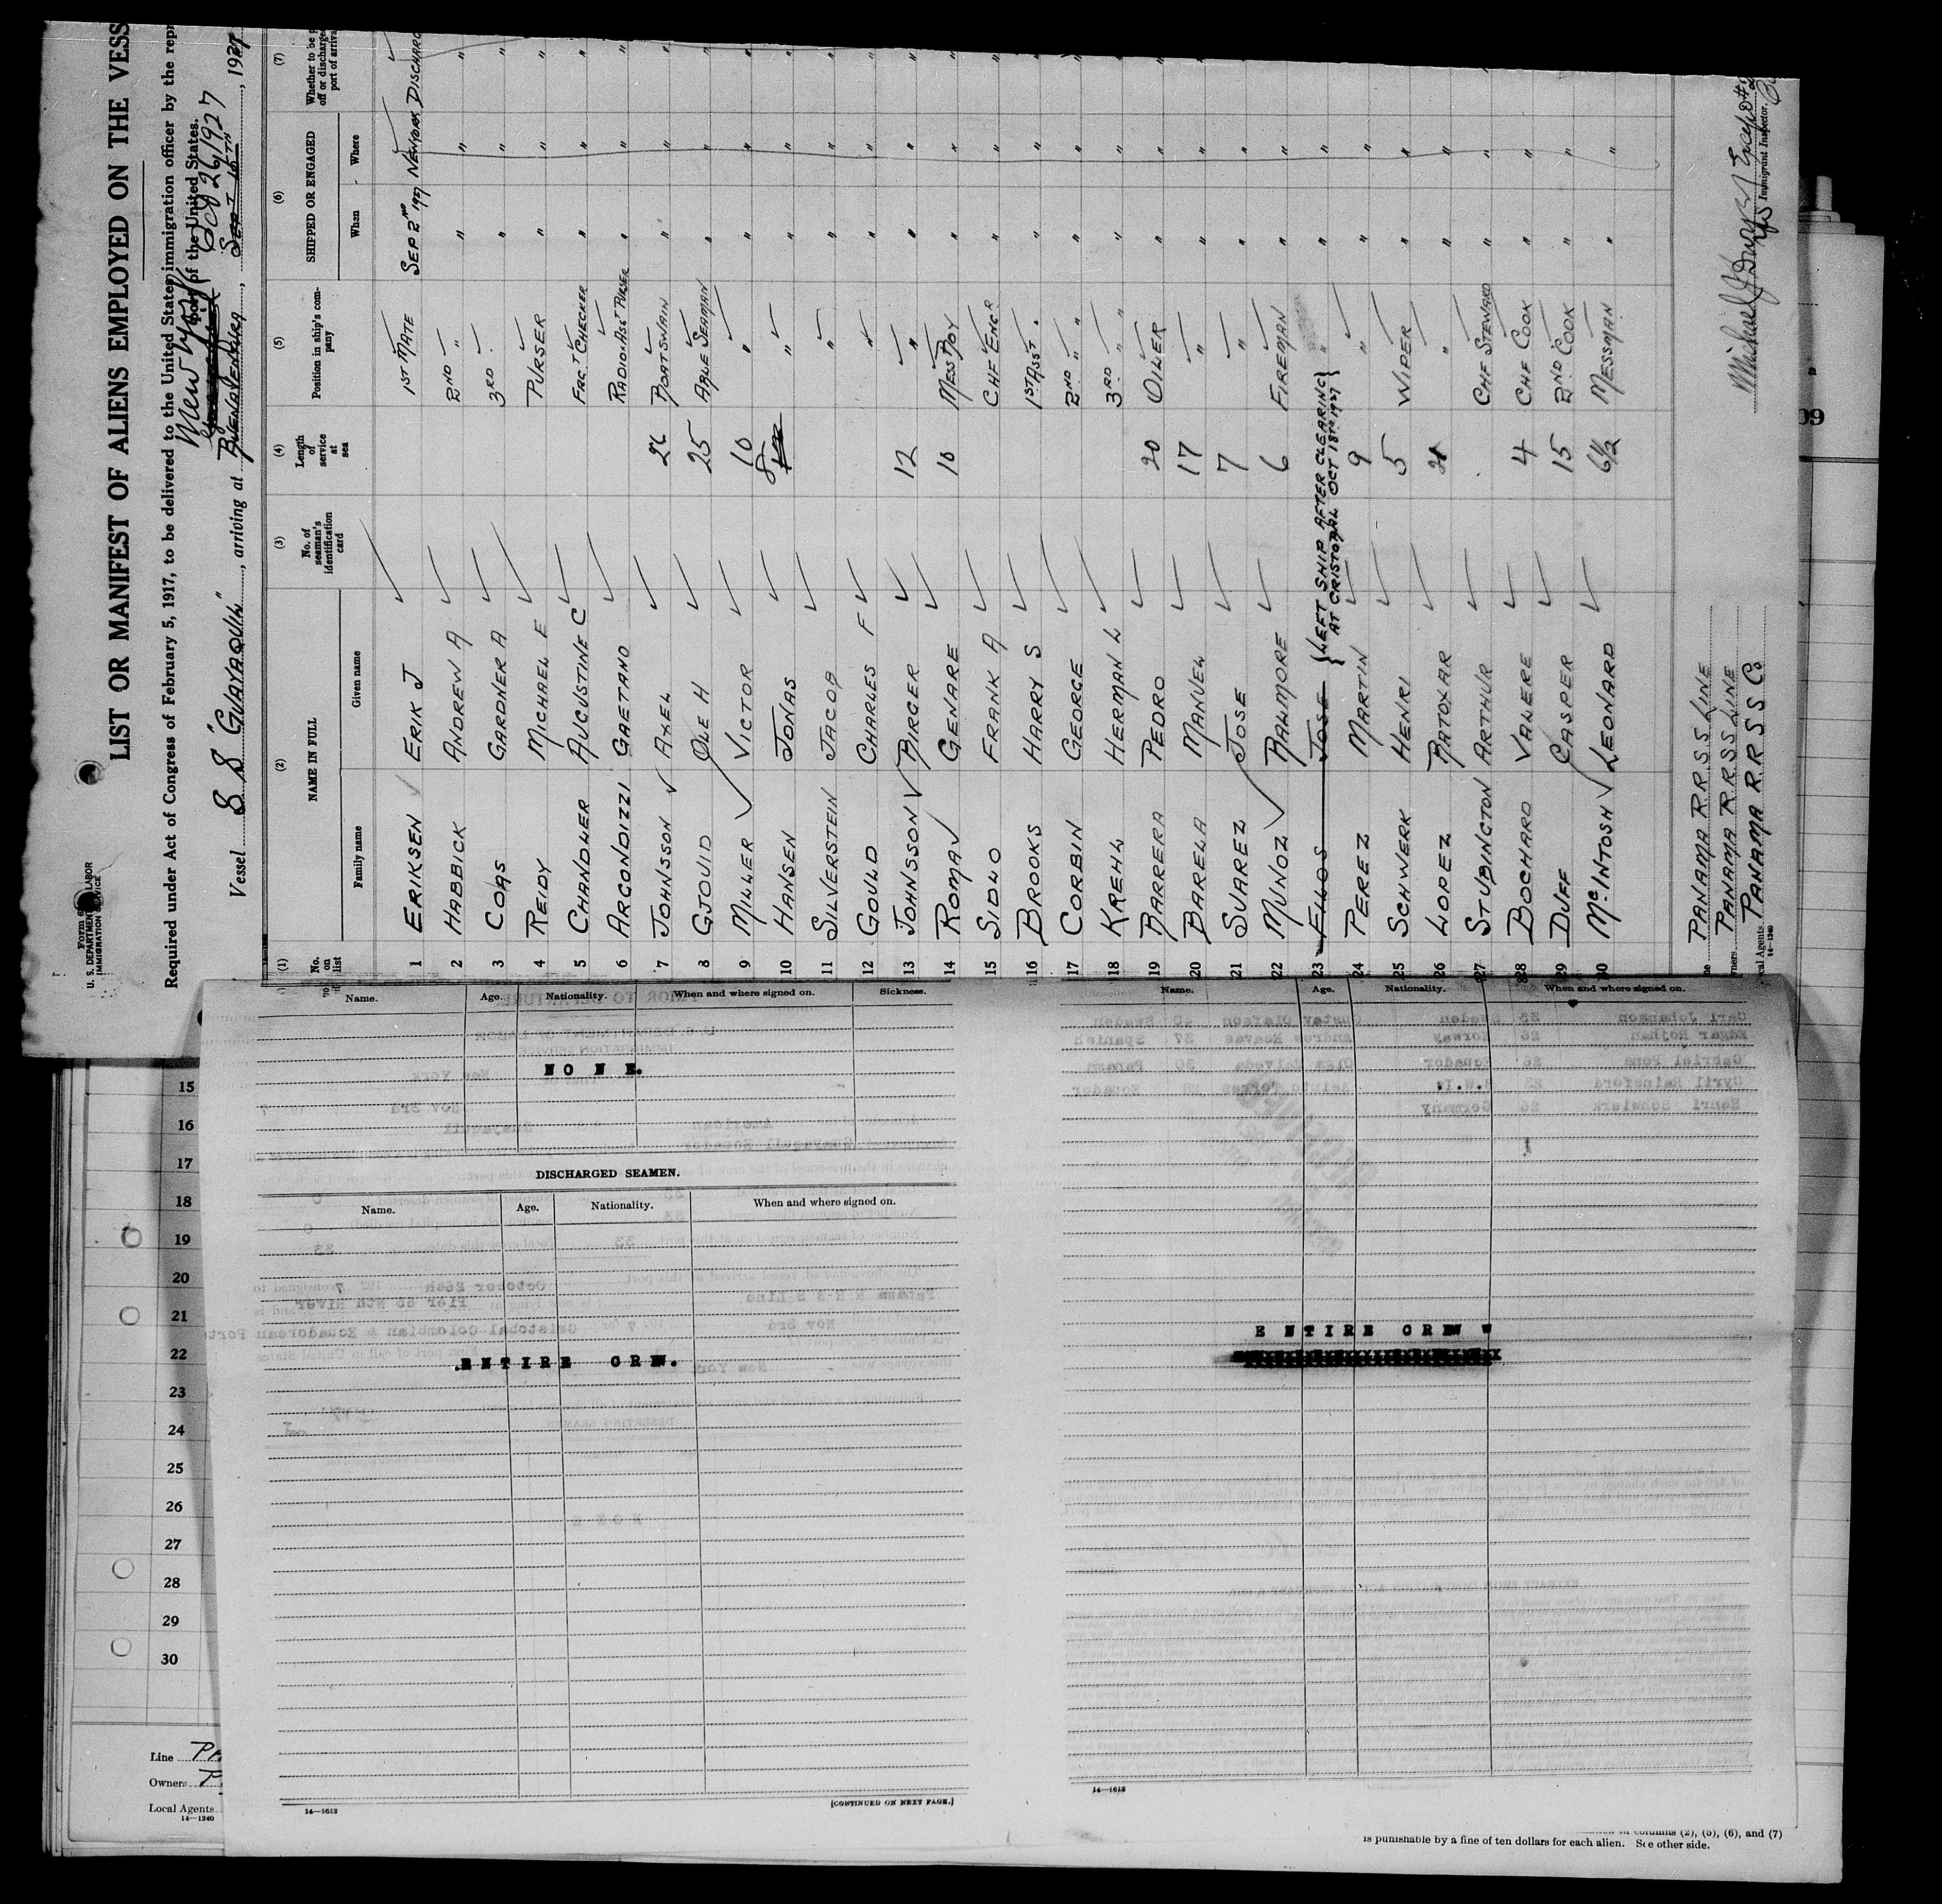 Form 6
U. S. DEPARTMENT LABOR
IMMIGRATION SERVICE
LIST OR MANIFEST OF ALIENS EMPLOYED ON THE VESS
Required under Act of Congress of February 5, 1917, to be delivered to the United States immigration officer by the repr
port of the United States.
New York Oct 26/1927
Vessel S S "GUAYAQUIL", arriving at BUENAVENTURA, SEPT 10TH, 1927
(1) (2) (3) (4) (5) (6) (7)
No. on list
NAME IN FULL
Family name Given name
No. of seaman's identification card
Length of service at sea
Position in ship's company
SHIPPED OR ENGAGED
When Where
Whether to be p
off or discharged
port of arrival
1 ERIKSEN ERIK J 1ST MATE SEP 2ND 1927 NEW YORK DISCHARG
2 HABBICK ANDREW A 2ND " " " "
3 COAS GARDNER A 3RD " " " "
4 REIDY MICHAEL E PURSER " " "
5 CHANDLER AUGUSTINE C FRGT CHECKER " " "
6 ARGONDIZZI GAETANO RADIO & ASST PURSER " " "
7 JOHNSSON AXEL 26 BOATSWAIN " " "
8 GJOUID OLE H 25 ABLE SEAMAN " " "
9 MILLER VICTOR 10 " " " "
10 HANSEN JONAS 8 " " " "
11 SILVERSTEIN JACOB " " " "
12 GOULD CHARLES F " " " "
13 JOHNSSON BIRGER 12 " " " "
14 ROMAN GENARE 10 MESS BOY " " "
15 SIDLO FRANK A CHF ENGR " " "
16 BROOKS HARRY S 1ST ASST " " " "
17 CORBIN GEORGE 2ND " " " " "
18 KREHL HERMAN L 3RD " " " " "
19 BARRERA PEDRO 20 OILER " " "
20 BARELA MANUEL 17 " " " "
21 SUAREZ JOSE 7 " " " "
22 MUNOZ BALMORE 6 FIREMAN " " "
23 FILOS JOSE {LEFT SHIP AFTER CLEARING} " " " "
AT CRISTOBAL OCT 18TH 1927
24 PEREZ MARTIN 9 " " " "
25 SCHWERK HENRI 5 WIPER " " "
26 LOPEZ BATOXAR " " " "
27 STUBINGTON ARTHUR CHF STEWARD " " "
28 BOCHARD VALERE 4 CHF COOK " " "
29 DUFF CASPER 15 2ND COOK " " "
30 McINTOSH LEONARD 6½ MESSMAN " " "
PANAMA R.R.S.S LINE
PANAMA R R S S LINE
Local Agents PANAMA R R S S Co
14—1240
Immigrant Inspector.
Name. Age. Nationality. When and where signed on. Sickness.
N O N E.
DISCHARGED SEAMEN.
Name. Age. Nationality. When and where signed on.
.ENTIRE CREW.
14—1613
[CONTINUED ON NEXT PAGE.]
Name. Age. Nationality. When and where signed on.
E N T I R E C R E W
14—1613
15
16
17
18
19
20
21
22
23
24
25
26
27
28
29
30
Line
Owners
Local Agents
14—1240
09
columns (2), (5), (6), and (7)
is punishable by a fine of ten dollars for each alien. See other side.